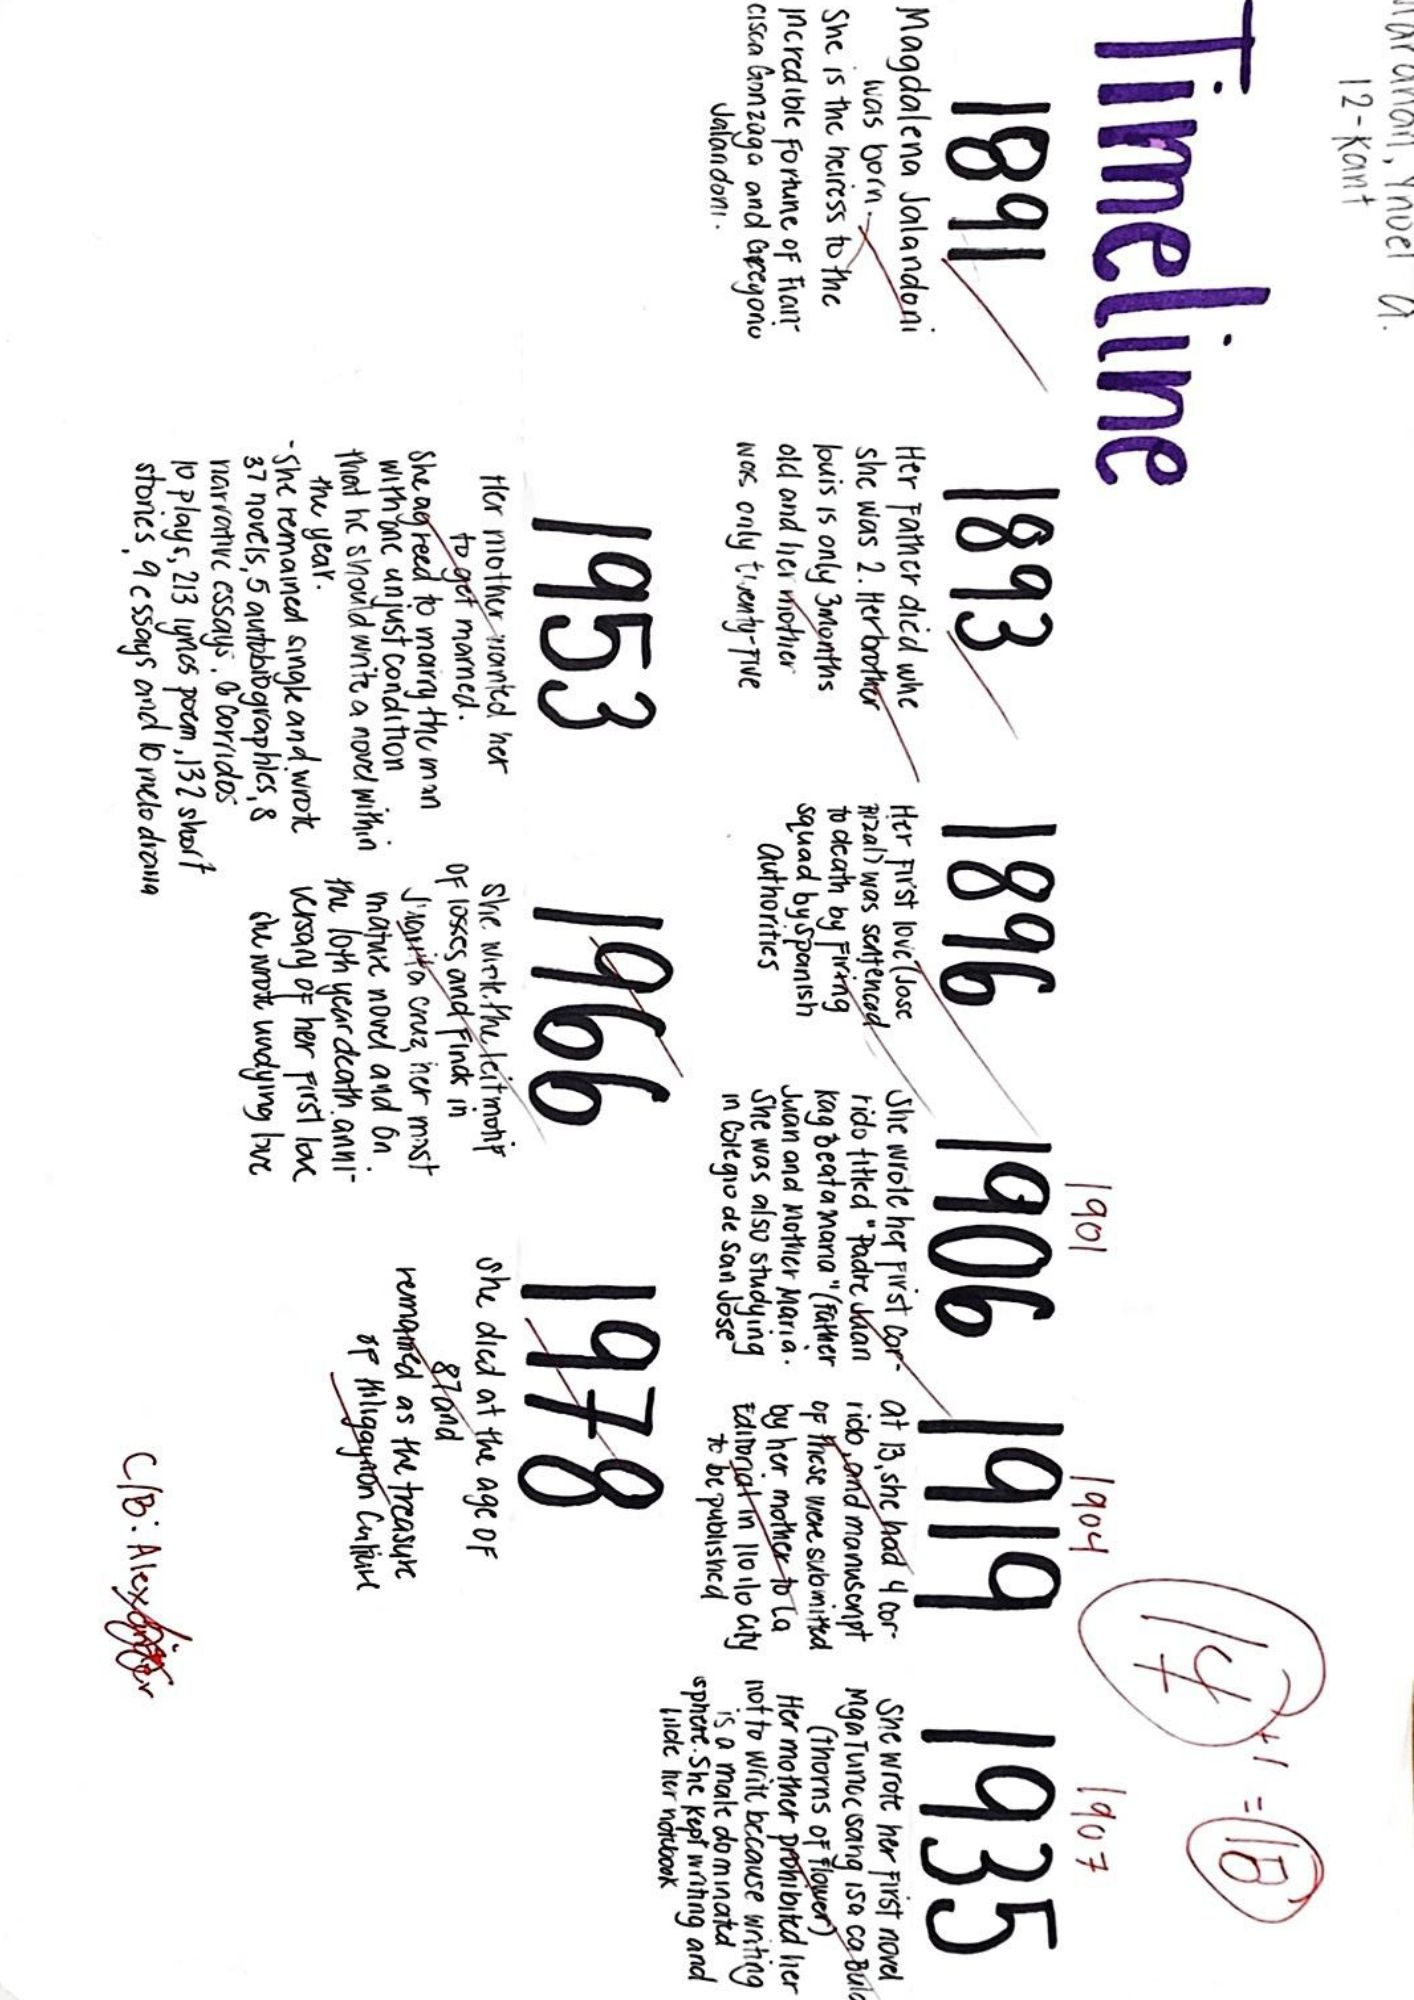 Ynoel A.
12-Kant
14 +1 = 18
Timeline
1891
Magdalena Jalandoni
was born.
She is the heiress to the
incredible fortune of Fran-
cisca Gonzaga and Gregorio
Jalandoni.
1893
Her Father died whe
she was 2. Her brother
louis is only 3months
old and her mother
was only twenty-five
1896
Her First love (Jose
Rizal) was sentenced
to death by Firing
squad by Spanish
Authorities
1901
1906
She wrote her first Cor-
rido titled "Padre Juan
Kag Beata Maria" (Father
Juan and Mother Maria.
She was also studying
in Colegio de San Jose
1904
1919
at 13, she had 4 cor-
rido, and manuscript
of these were submitted
by her mother to La
Editorial in Iloilo City
to be published
1907
1935
She wrote her first novel
Mga Tunoc sang isa ca Bulc
(thorns of flower)
Her mother prohibited her
not to write because writing
is a male dominated
sphere. She kept writing and
hide her notebook
1953
Her mother wanted her
to get married.
She agreed to marry the man
with one unjust condition
that he should write a novel within
the year.
-She remained single and wrote
37 novels, 5 autobiographies, 8
narrative essays, 6 Corridos
10 plays, 213 lyrics poem, 132 short
stories, 9 essays and 10 melodrama
1966
She the leitmotif
of losses and Finds in
Juanita Cruz, her most
mature novel and on
the 10th year death anni-
versary of her First love
she wrote undying love
1978
She died at the age of
87 and
remained as the treasure
of Hiligaynon Culture
C/B: Alexander